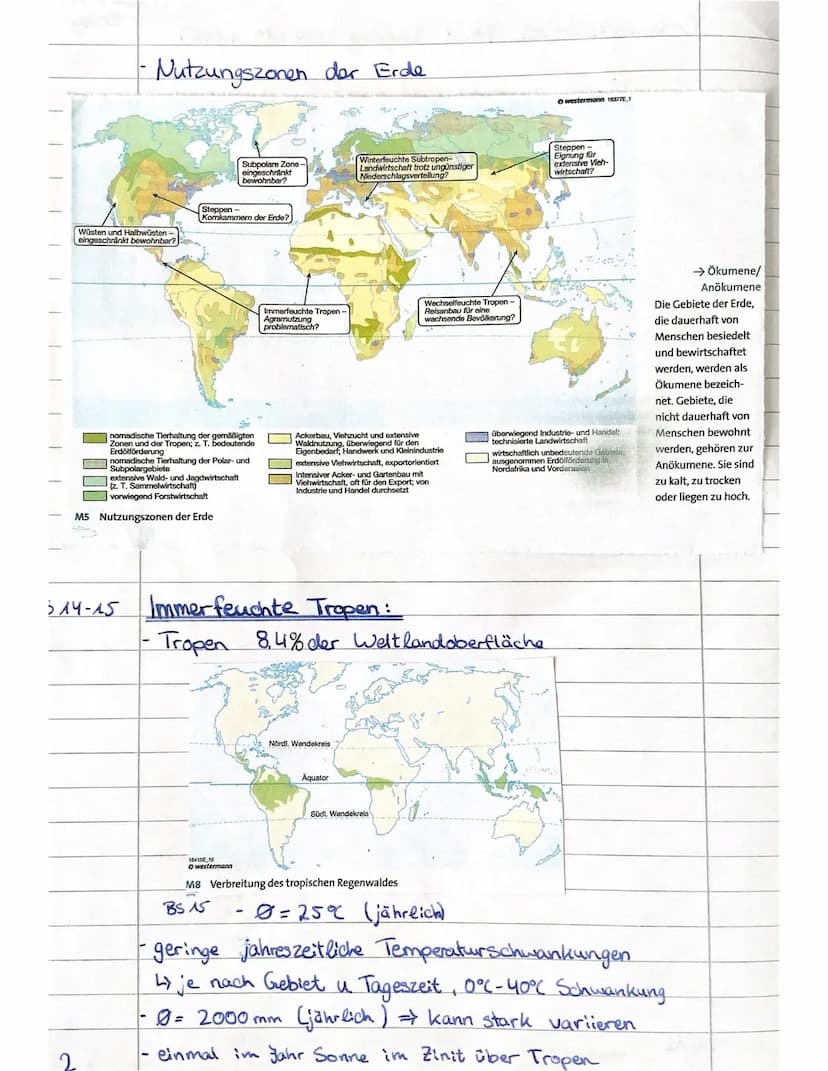 - Nutzungszonen der Erde
© westermann 16377E_1
Subpolare Zone –
eingeschränkt
bewohnbar?
Winterfeuchte Subtropen–
Landwirtschaft trotz ungünstiger
Niederschlagsverteilung?
Steppen –
Eignung für
extensive Vieh-
wirtschaft?
Steppen –
Kornkammern der Erde?
Wüsten und Halbwüsten –
eingeschränkt bewohnbar?
Immerfeuchte Tropen –
Agrarnutzung
problematisch?
Wechselfeuchte Tropen –
Reisanbau für eine
wachsende Bevölkerung?
→ Ökumene/
Anökumene
Die Gebiete der Erde,
die dauerhaft von
Menschen besiedelt
und bewirtschaftet
werden, werden als
Ökumene bezeich-
net. Gebiete, die
nicht dauerhaft von
Menschen bewohnt
werden, gehören zur
Anökumene. Sie sind
zu kalt, zu trocken
oder liegen zu hoch.
nomadische Tierhaltung der gemäßigten
Zonen und der Tropen; z. T. bedeutende
Erdölförderung
nomadische Tierhaltung der Polar- und
Subpolargebiete
extensive Wald- und Jagdwirtschaft
(z. T. Sammelwirtschaft)
vorwiegend Forstwirtschaft
Ackerbau, Viehzucht und extensive
Waldnutzung, überwiegend für den
Eigenbedarf; Handwerk und Kleinindustrie
extensive Viehwirtschaft, exportorientiert
intensiver Acker- und Gartenbau mit
Viehwirtschaft, oft für den Export; von
Industrie und Handel durchsetzt
überwiegend Industrie- und Handel;
technisierte Landwirtschaft
wirtschaftlich unbedeutende Gebiete,
ausgenommen Erdölförderung in
Nordafrika und Vorderasien
M5 Nutzungszonen der Erde
S 14-15 Immerfeuchte Tropen:
- Tropen 8,4% der Weltlandoberfläche
Nördl. Wendekreis
Äquator
Südl. Wendekreis
© westermann
M8 Verbreitung des tropischen Regenwaldes
BS 15 - Ø = 25°C (jährlich)
- geringe jahreszeitliche Temperaturschwankungen
↳ je nach Gebiet u Tageszeit, 0°C-40°C Schwankung
- Ø = 2000 mm (jährlich) ⇒ kann stark variieren
2 - einmal im Jahr Sonne im Zinit über Tropen